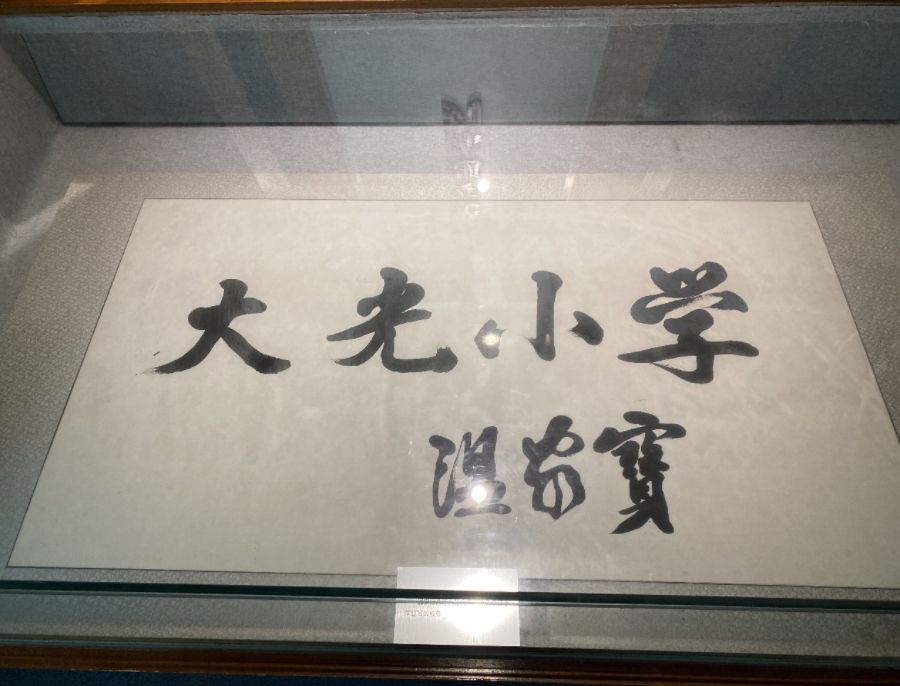 大光小学
温家寶